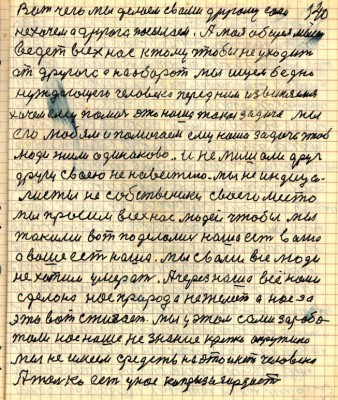 Вот чего мы делаем своим другому сего 140
нехочем а друга посылаем. А моя общая мысль
ведет всех нас к тому чтобы не уходит
от другого а наоборот мы ищем бедно
нуждающего человека перед ним извиняемся
хочем ему помоч это наша такая задача мы
его любим и помогаем ему наша задача чтоб
люди жили одинаково. И не мишали друг
другу своею не навистию. мы не индивуа-
листы не собственики своего место
мы просим всех нас людей чтобы мы
так жили вот по делам наша ест ваша
а ваше ест наша. мы с вами все люди
не хотим умерат. А через наша всё нами
сделоно нас природа нежелеет а нас за
это вот стигает. мы у этом сами зарабо-
тали нас наше не знание крепко окружило
мы не имеем средств на это и нет человека
А только ест у нас